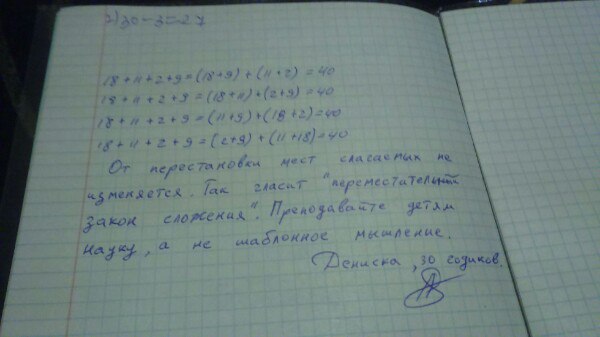 2) 30-3=27
18+11+2+9=(18+9)+(11+2)=40
18+11+2+9=(18+11)+(2+9)=40
18+11+2+9=(11+9)+(18+2)=40
18+11+2+9=(2+9)+(11+18)=40
От перестановки мест слагаемых не
изменяется. Так гласит "переместительный
закон сложения". Преподавайте детям
науку, а не шаблонное мышление.
Дениска, 30 годиков.